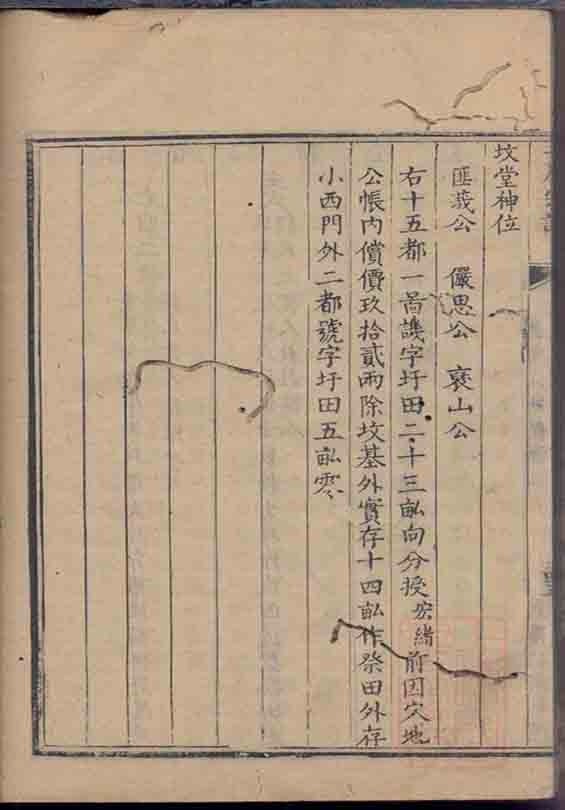 坟堂神位
匪莪公　儼思公　裒山公
右十五都一啚譏字圩田二十三畝向分授宏緒前因穴地
公帳內償價玖拾貳兩除坟基外實存十四畝作祭田外存
小西門外二都號字圩田五畝零